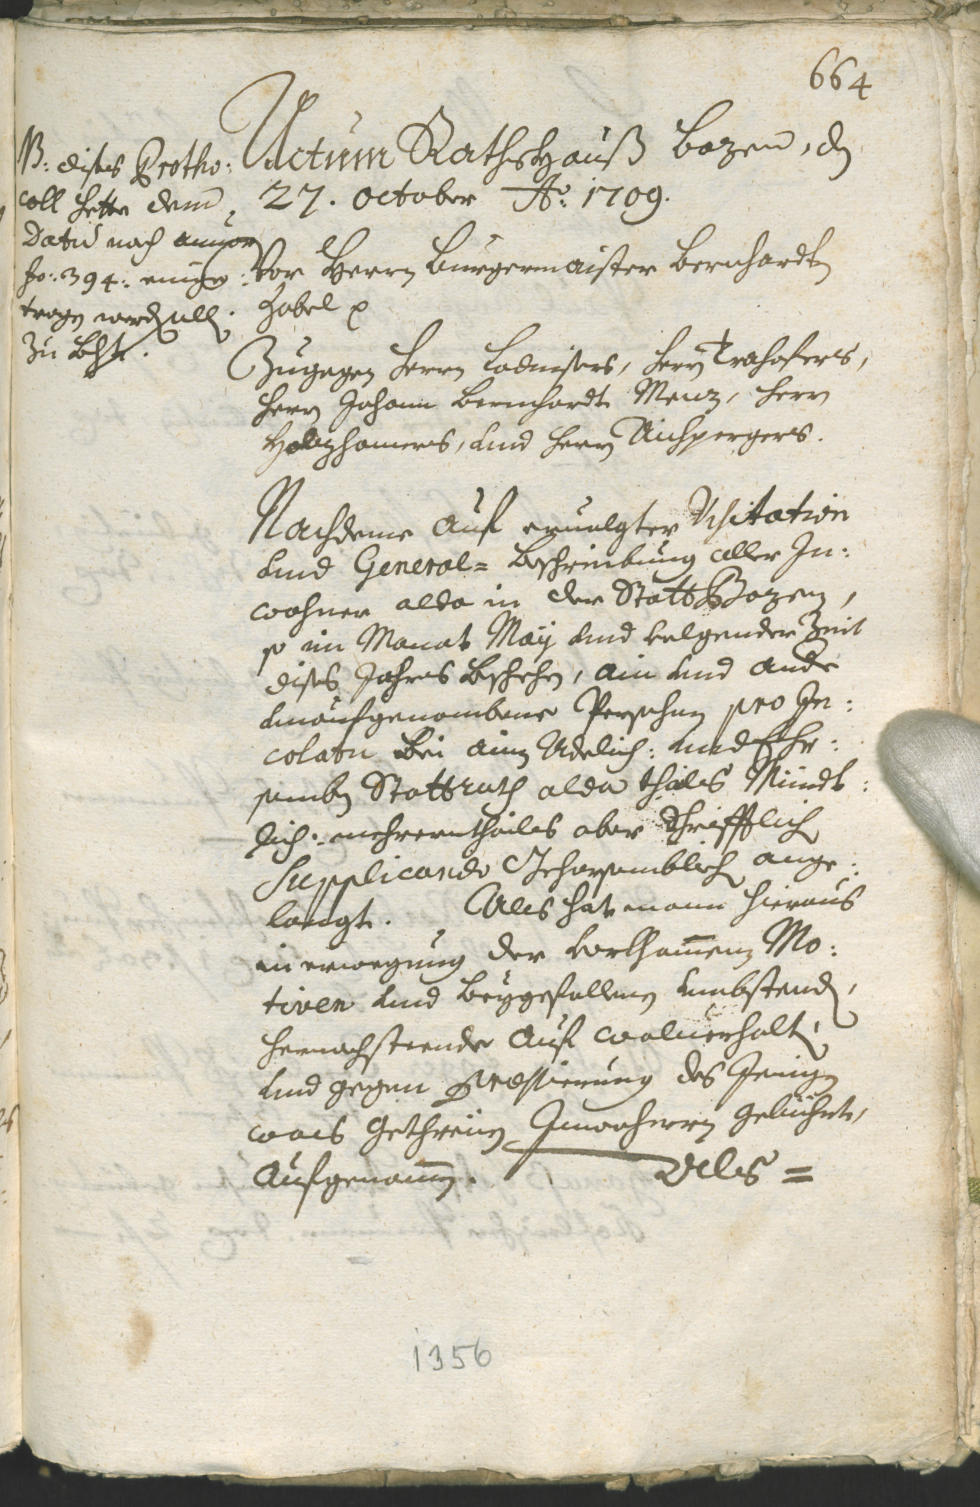 664
NB: dises Protho:
coll hette dem
Dato nach anvor
fo: 394: einge:
tragen werden soll.
zu
Actum RathsHauß Bozen, den
27. October Ao: 1709.
Vor Herrn Burgermaister Bernhardten
Zobel
Zugegen Herrn Ladurners, Herrn Trahofers,
Herrn Johann Bernhardt Menz, Herrn
Holzhamers, und Herrn Aichpergers.
Nachdeme auf ervolgter Visitation
und General= Beschreibung aller In:
wohner alda in der Statt Bozen,
so im Monat Maÿ und volgender Zeit
dises Jahres beschehen, ain und ande
unaufgenombene Persohnen pro In:
colatu bei ainem Adelich: und Ehr:
samben Stattrath alda thails Mündt:
lich: mehrernthailes aber Schrifftlich
Supplicando Gehorsamblich ange:
langt. Als hat mann hieraus
in erwegung der vorkhommenen Mo:
tiven und beygefallenen umbstenden,
hernachsteende auf wolverhalten,
und gegen Præstierung des Jenigen
was gethreuen Innwohnern gebühret,
aufgenommen. Alls =
1356